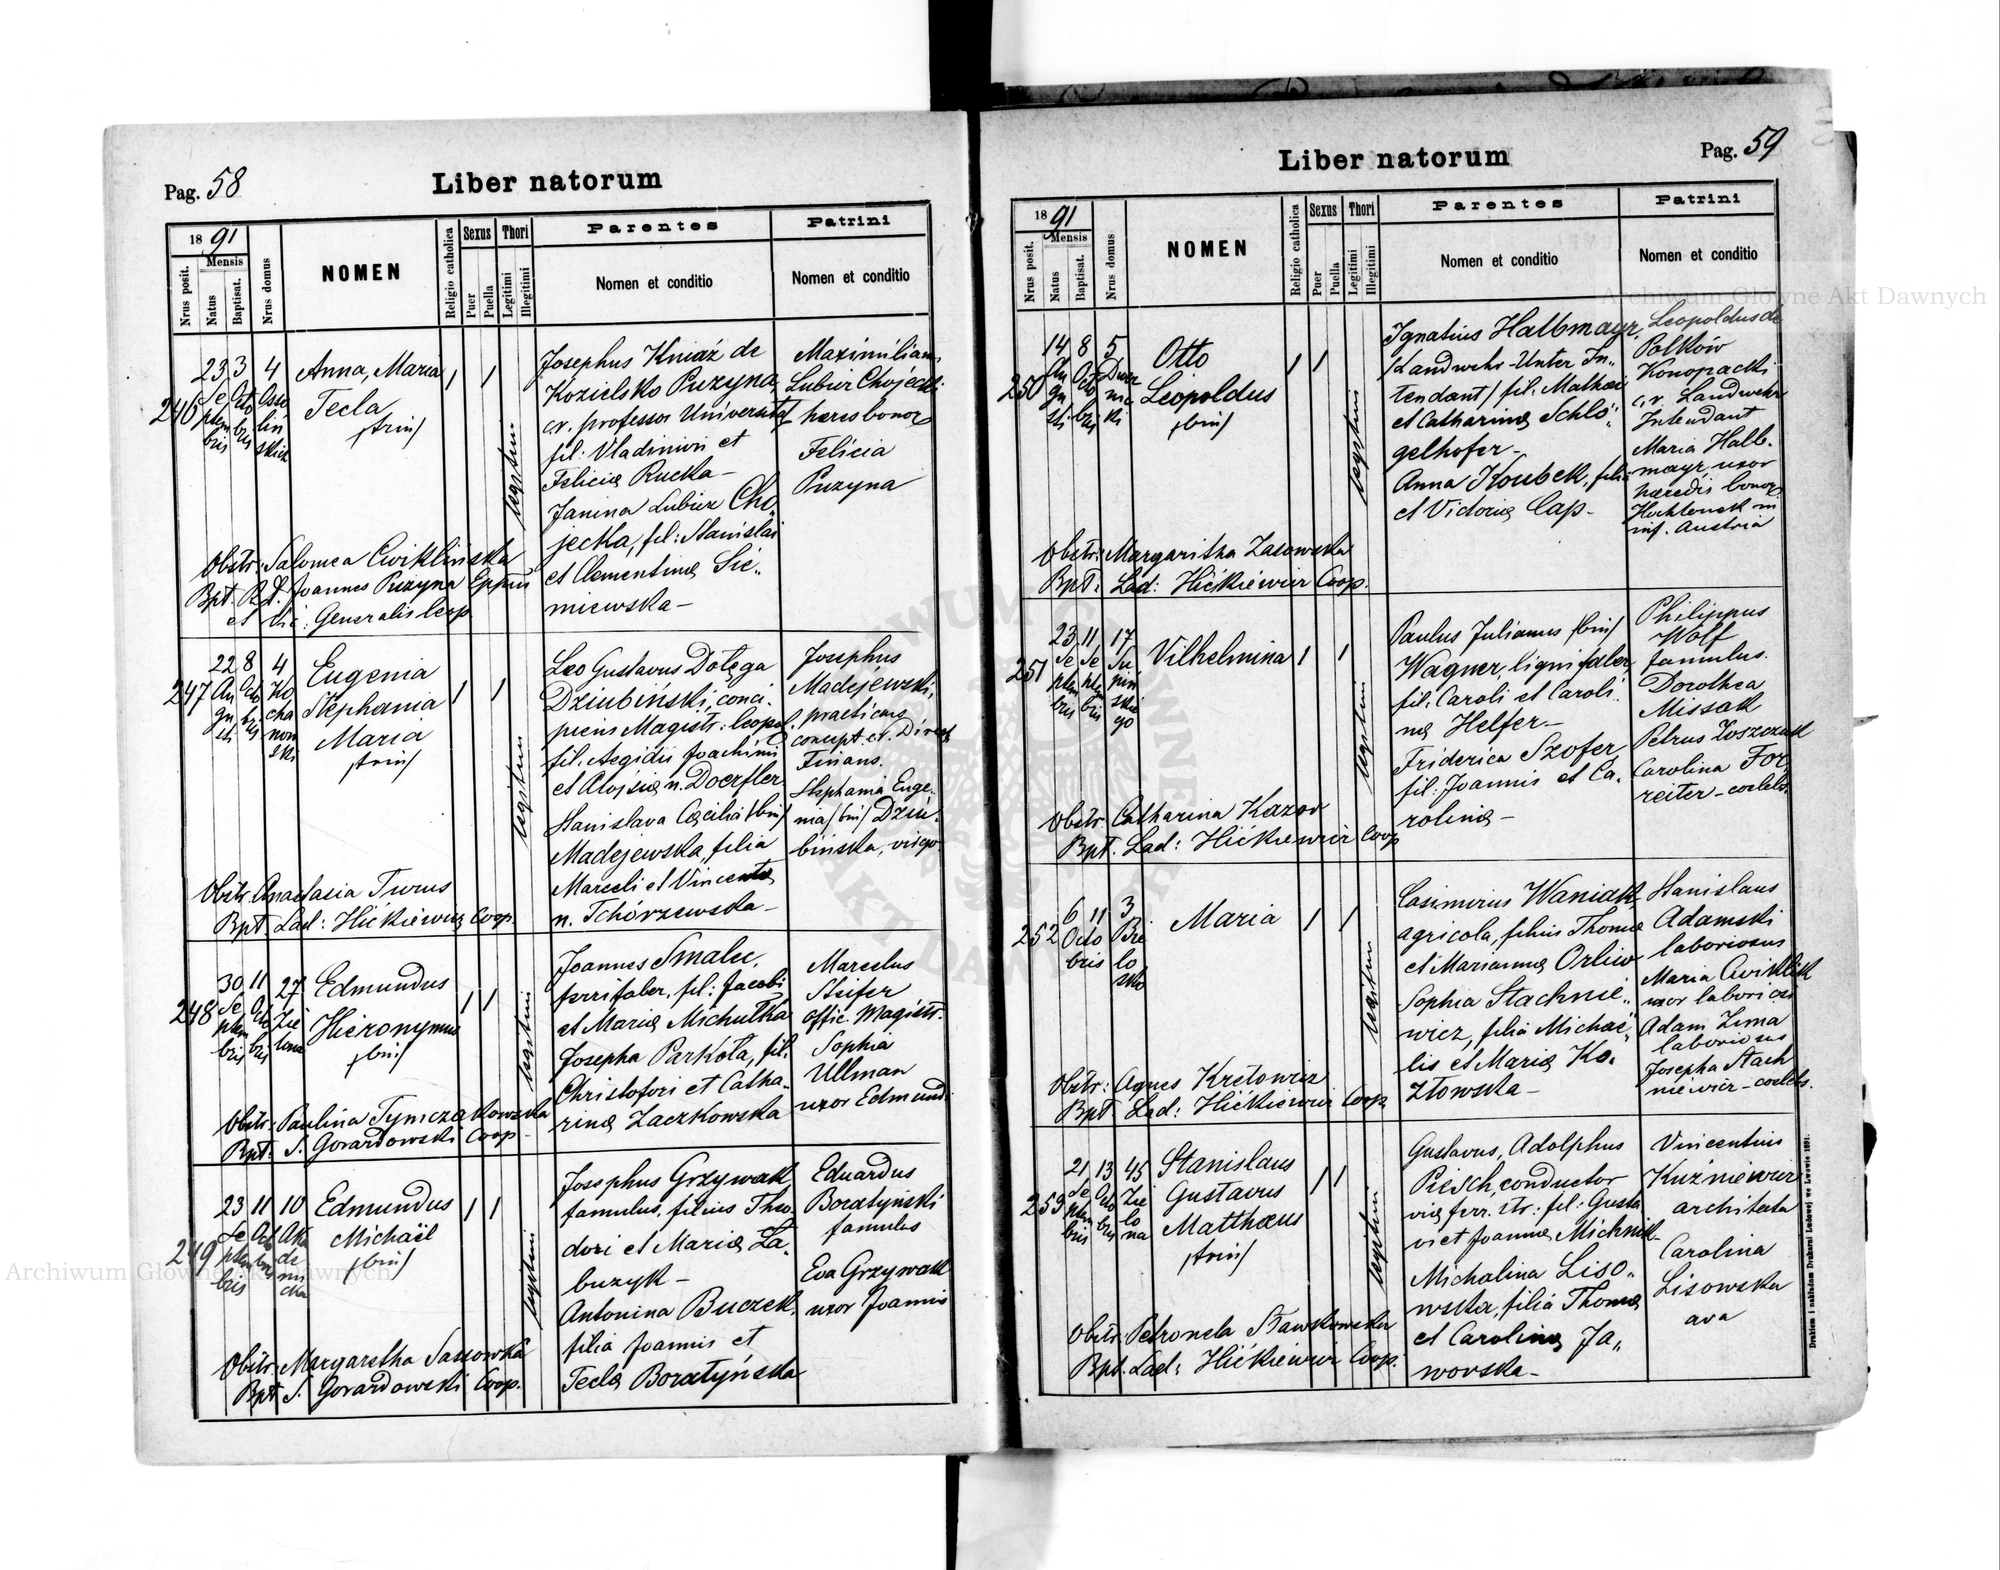 Pag. 58
Liber natorum
1891
Mensis
Nrus posit.
Natus
Baptisat.
Nrus domus
NOMEN
Religio catholica
Sexus
Puer
Puella
Thori
Legitimi
Illegitimi
Parentes
Nomen et conditio
Patrini
Nomen et conditio
246
23 Septembris
3 Octobris
4 Ossolińskich
Anna, Maria
Tecla
/trin/
legitimi
Josephus Kniaź de
Kozielsko Puzyna
c.r. professor Universitat
fil: Vladimiri et
Feliciæ Rucka –
Janina Lubicz Cho„
jecka, fil: Stanislai
et Clementinæ Sie„
niewska –
Maximilianus
Lubicz Chojecki
hæres bonor.
Felicia
Puzyna
Obstr: Salomea Cwiklińska
Bpt. R.d. Joannes Puzyna Eppus
et Vic: Generalis Leop
247
22 Augusti
8 Octobris
4 Kochanowski
Eugenia
Stephania
Maria
/trin/
legitimi
Leo Gustavus Dołęga
Dziubiński, conci-
piens Magistr: Leopol.
fil. Aegidii Joachimi
et Aloisiæ n. Doerfler
Stanislava Cæcilia /bin/
Madejewska, filia
Marceli et Vincentæ
n. Tchórzewska –
Josephus
Madejewski,
practicans
concept. c.r. Direct
Finans.
Stephania Euge-
nia /bin/ Dziu-
bińska, virgo
Obstr. Anastasia Turus
Bpt. Lad: Hićkiewicz Coop.
248
30 Septembris
11 Octobris
27 Zielona
Edmundus
Hieronymus
/bin/
legitimi
Joannes Smalec,
ferrifaber, fil: Jacobi
et Mariæ Michułka
Josepha Parkota, fil.
Christofori et Catha-
rinæ Zaczkowska
Marcelus
Steifer
offic. Magistr.
Sophia
Ullman
uxor Edmundi
Obstr: Paulina Tymczakowska
Bpt. S. Gorardowski Coop.
249
23 Septembris
11 Octobris
10 Akademicka
Edmundus
Michaël
/bin/
legitimi
Josephus Grzywak
famulus, filius Theo-
dori et Mariæ Ła-
buzyk –
Antonina Buczek,
filia Joannis et
Teclæ Boratyńska
Eduardus
Boratyński
famulus
Eva Grzywak
uxor Joannis
Obstr: Margaretha Sassowska
Bpt S. Gorardowski Coop.
Liber natorum
Pag. 59
1891
Mensis
Nrus posit.
Natus
Baptisat.
Nrus domus
NOMEN
Religio catholica
Sexus
Puer
Puella
Thori
Legitimi
Illegitimi
Parentes
Nomen et conditio
Patrini
Nomen et conditio
250
14 Augusti
8 Octobris
5
Otto
Leopoldus
/bin/
legitimi
Ignatius Halbmayr,
/Landwehr-Unter In„
tendant/ fil. Mathæi
et Catharinæ Schlö„
gelhofer –
Anna Koubek, filia
et Victoriæ Cap –
Leopoldus de
Polków
Konopacki
c.r. Landwehr
Intendant
Maria Halb-
mayr uxor
hæredis bonor.
in
inf. Austria
Obstr: Margaritha Zasowska
Bpt: Lad: Hićkiewicz Coop.
251
23 Septembris
11 Septembris
17 Supińskiego
Vilhelmina
legitimi
Paulus Julianus /bin/
Wagner, lignifaber,
fil. Caroli et Caroli-
næ Helfer –
Friderica Szofer
fil. Joannis et Ca-
rolinæ –
Philippus
Wolf
famulus.
Dorothea
Missak
Petrus Koszczuk
Carolina For
reiter – coelebs.
Obstr. Catharina Kazor
Bpt. Lad: Hićkiewicz Coop
252
6 Octobris
11
3
Maria
legitimi
Casimirus Waniak
agricola, filius Thomæ
et Mariannæ Orlicw
Sophia Stachnie„
wicz, filia Michaë„
lis et Mariæ Ko„
złowska –
Stanislaus
Adamski
laboriosus
Maria Cwiklik
uxor laboriosi
Adam Zima
laboriosus
Josepha Stach
niewicz – coelebs.
Obstr: Agnes Kretowicz
Bpt. Lad: Hićkiewicz Coop
253
21 Septembris
13 Octobris
45 Zielona
Stanislaus
Gustavus
Matthæus
/trin/
legitimi
Gustavus, Adolphus
Piesch, conductor
viæ ferr. str: fil: Gusta
vi et Joannæ Michnik
Michalina Liso„
wska, filia Thomæ
et Carolinæ Ja„
worska –
Vincentius
Kuźniewicz
architecta
Carolina
Lisowska
ava
Obstr: Petronela Sawkowska
Bpt. Lad: Hićkiewicz Coop.
Drukiem i nakładem Drukarni Ludowej we Lwowie 1891.
Archiwum Główne Akt Dawnych
Archiwum Główne Akt Dawnych